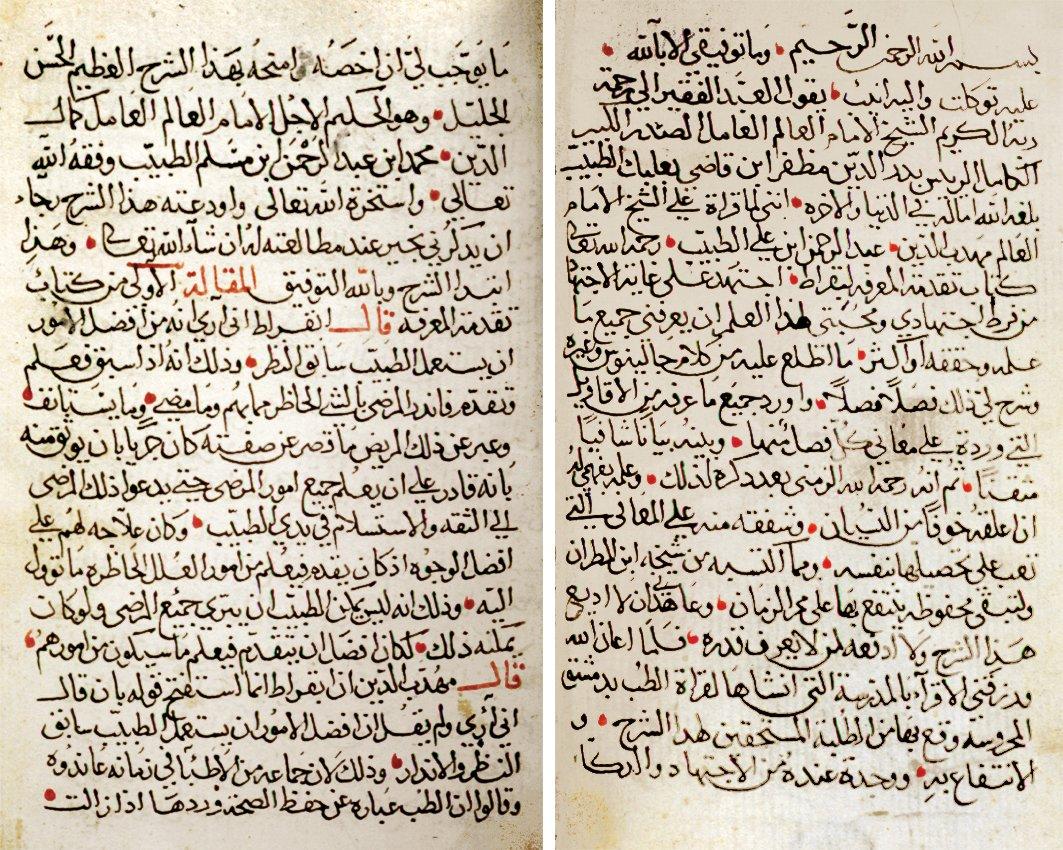 بسم الله الرحمن الرحيم وما توفيقي الا بالله
عليه توكلت واليه انيب يقول العبد الفقير الى رحمة
ربه الكريم الشيخ الامام العالم الفاضل الصدر الكبير
الكامل الرييس بدر الدين مظفر ابن قاضي بعلبك الطبيب
بلغه الله اماله في الدنيا والاخرة انني لما قراة على الشيخ الامام
العالم مهذب الدين عبد الرحمن ابن علي الطبيب رحمه الله تعالى
كتاب تقدمة المعرفة لبقراط اجتهد على غاية الاجتهاد
من فرط اجتهادي ومحبتي لهذا العلم ان يعرفني جميع ما
علمه وحققه او اكثر ما اطلع عليه من كلام جالينوس وغيره
وشرح لي ذلك فصلاً فصلاً واورد جميع ما عرفه من الاقاويل
التي وردة على معاني كل فصل منها وبينه بيانا شافيا
متقنا ثم انه رحمه الله الزمني بعد ذكره لذلك وعلمه بفهمي له
ان اعلقه خوفا من النسيان وشفقه منه على المعاني التي
تعب على تحصيلها بنفسه ومما اكتسبه من شيخه ابن المطران
ولتبقى محفوظه ينتفع بها على ممر الزمان وعاهدني ان لا اذيع
هذا الشرح ولا ادفعه لمن لا يعرف قدره فلما اعان الله
ورزقني الاقرآء بالمدرسة التي انشاها لقراة الطب بدمشق
المحروسه وقع بها من الطلبة المستحقين لهذا الشرح و
الانتفاع به ووجدة عنده من الاجتهاد والذكا
ما يوجب لي ان اخصه وامنحه بهذا الشرح العظيم الحسن
الجليل وهو الحكيم الاجل الامام العالم العامل كمال
الدين محمد ابن عبد الرحمن ابن مسلم الطبيب وفقه الله
تعالى واستخرة الله تعالى واودعته هذا الشرح رجاء
ان يذكرني بخير عند مطالعته له ان شآء الله تعالى وهذا
ابتدا الشرح وبالله التوفيق المقالة الاولى من كتاب
تقدمة المعرفه قال ابقراط اني ارى انه من افضل الامور
ان يستعمل الطبيب سابق النظر وذلك انه اذا سبق فعلم
وتقدم فانذر المرضى بالشي الحاظر مما بهم وما مضى وما يستانف
وعبر عن ذلك المريض ما قصر عن صفته كان حريا بان يوثق منه
بانه قادر على ان يعلم جميع امور المرضى حتى يدعوا ذلك المرضى
الى الثقه والاستسلام في يدي الطبيب وكان علاجه لهم على
افضل الوجوه اذ كان يقدم فيعلم من امور العلل الحاظره ما توول
اليه وذلك انه ليس يمكن الطبيب ان يبرى جميع المرضى ولو كان
يمكنه ذلك لكان افضل ان يتقدم فيعلم ما سيكون من امورهم
قال مهذب الدين ان ابقراط انما استفتح قوله بان قال
اني ارى ولم يقل ان افضل الامور ان يستعمل الطبيب سابق
النظر والانذار وذلك لان جماعه من الاطبآ في زمانه عاندوه
وقالوا ان الطب عباره عن حفظ الصحة وردها اذا زالت